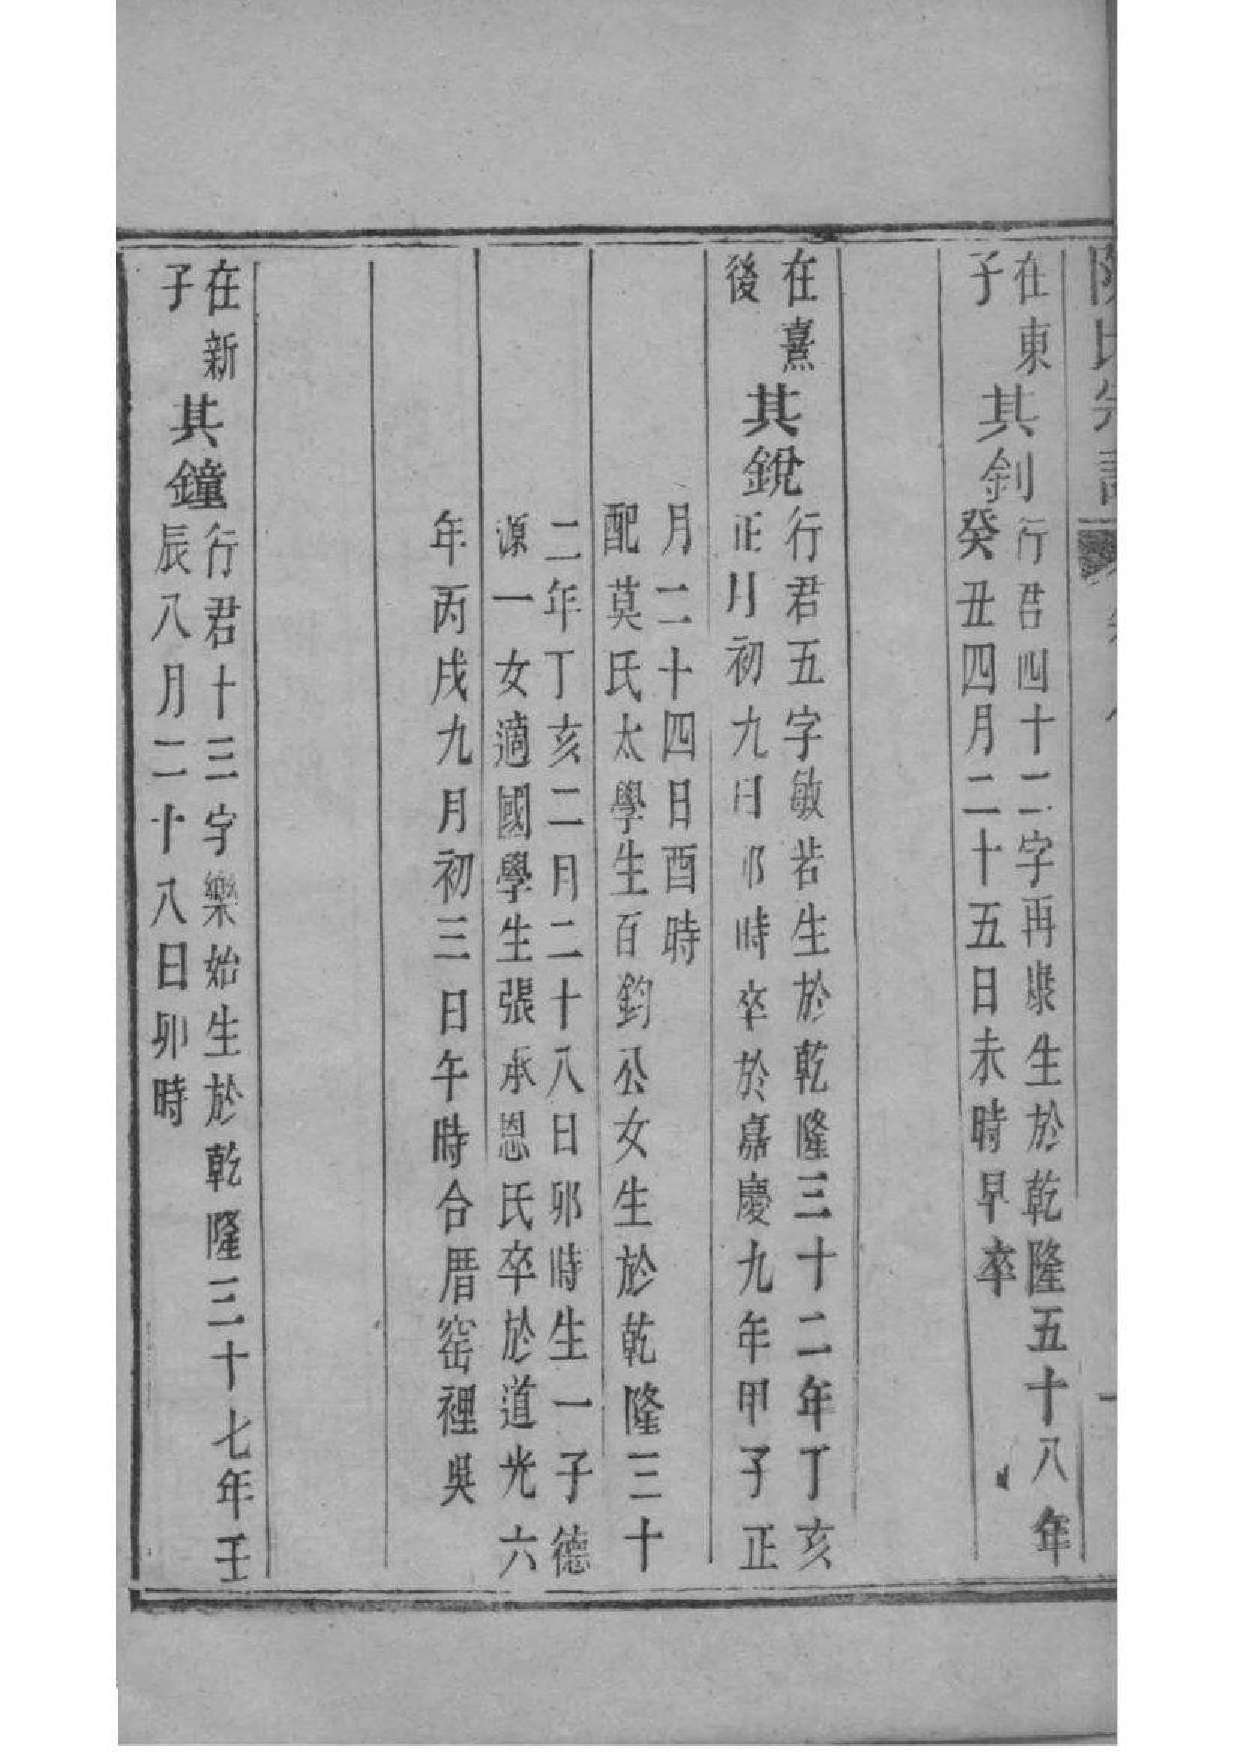 氏宗譜
在東
子
其釗
行君四十二字再生於乾隆五十八年
癸丑四月二十五日未時早卒
在熹
後
其銳
行君五字敏若生於乾隆三十二年丁亥
正月初九日卯時卒於嘉慶九年甲子正
月二十四日酉時
配莫氏太學生百鈞公女生於乾隆三十
二年丁亥二月二十八日卯時生一子德
源一女適國學生張承恩氏卒於道光六
年丙戌九月初三日午時合厝窑裡吳
在新
子
其鐘
行君十三字樂始生於乾隆三十七年壬
辰八月二十八日卯時